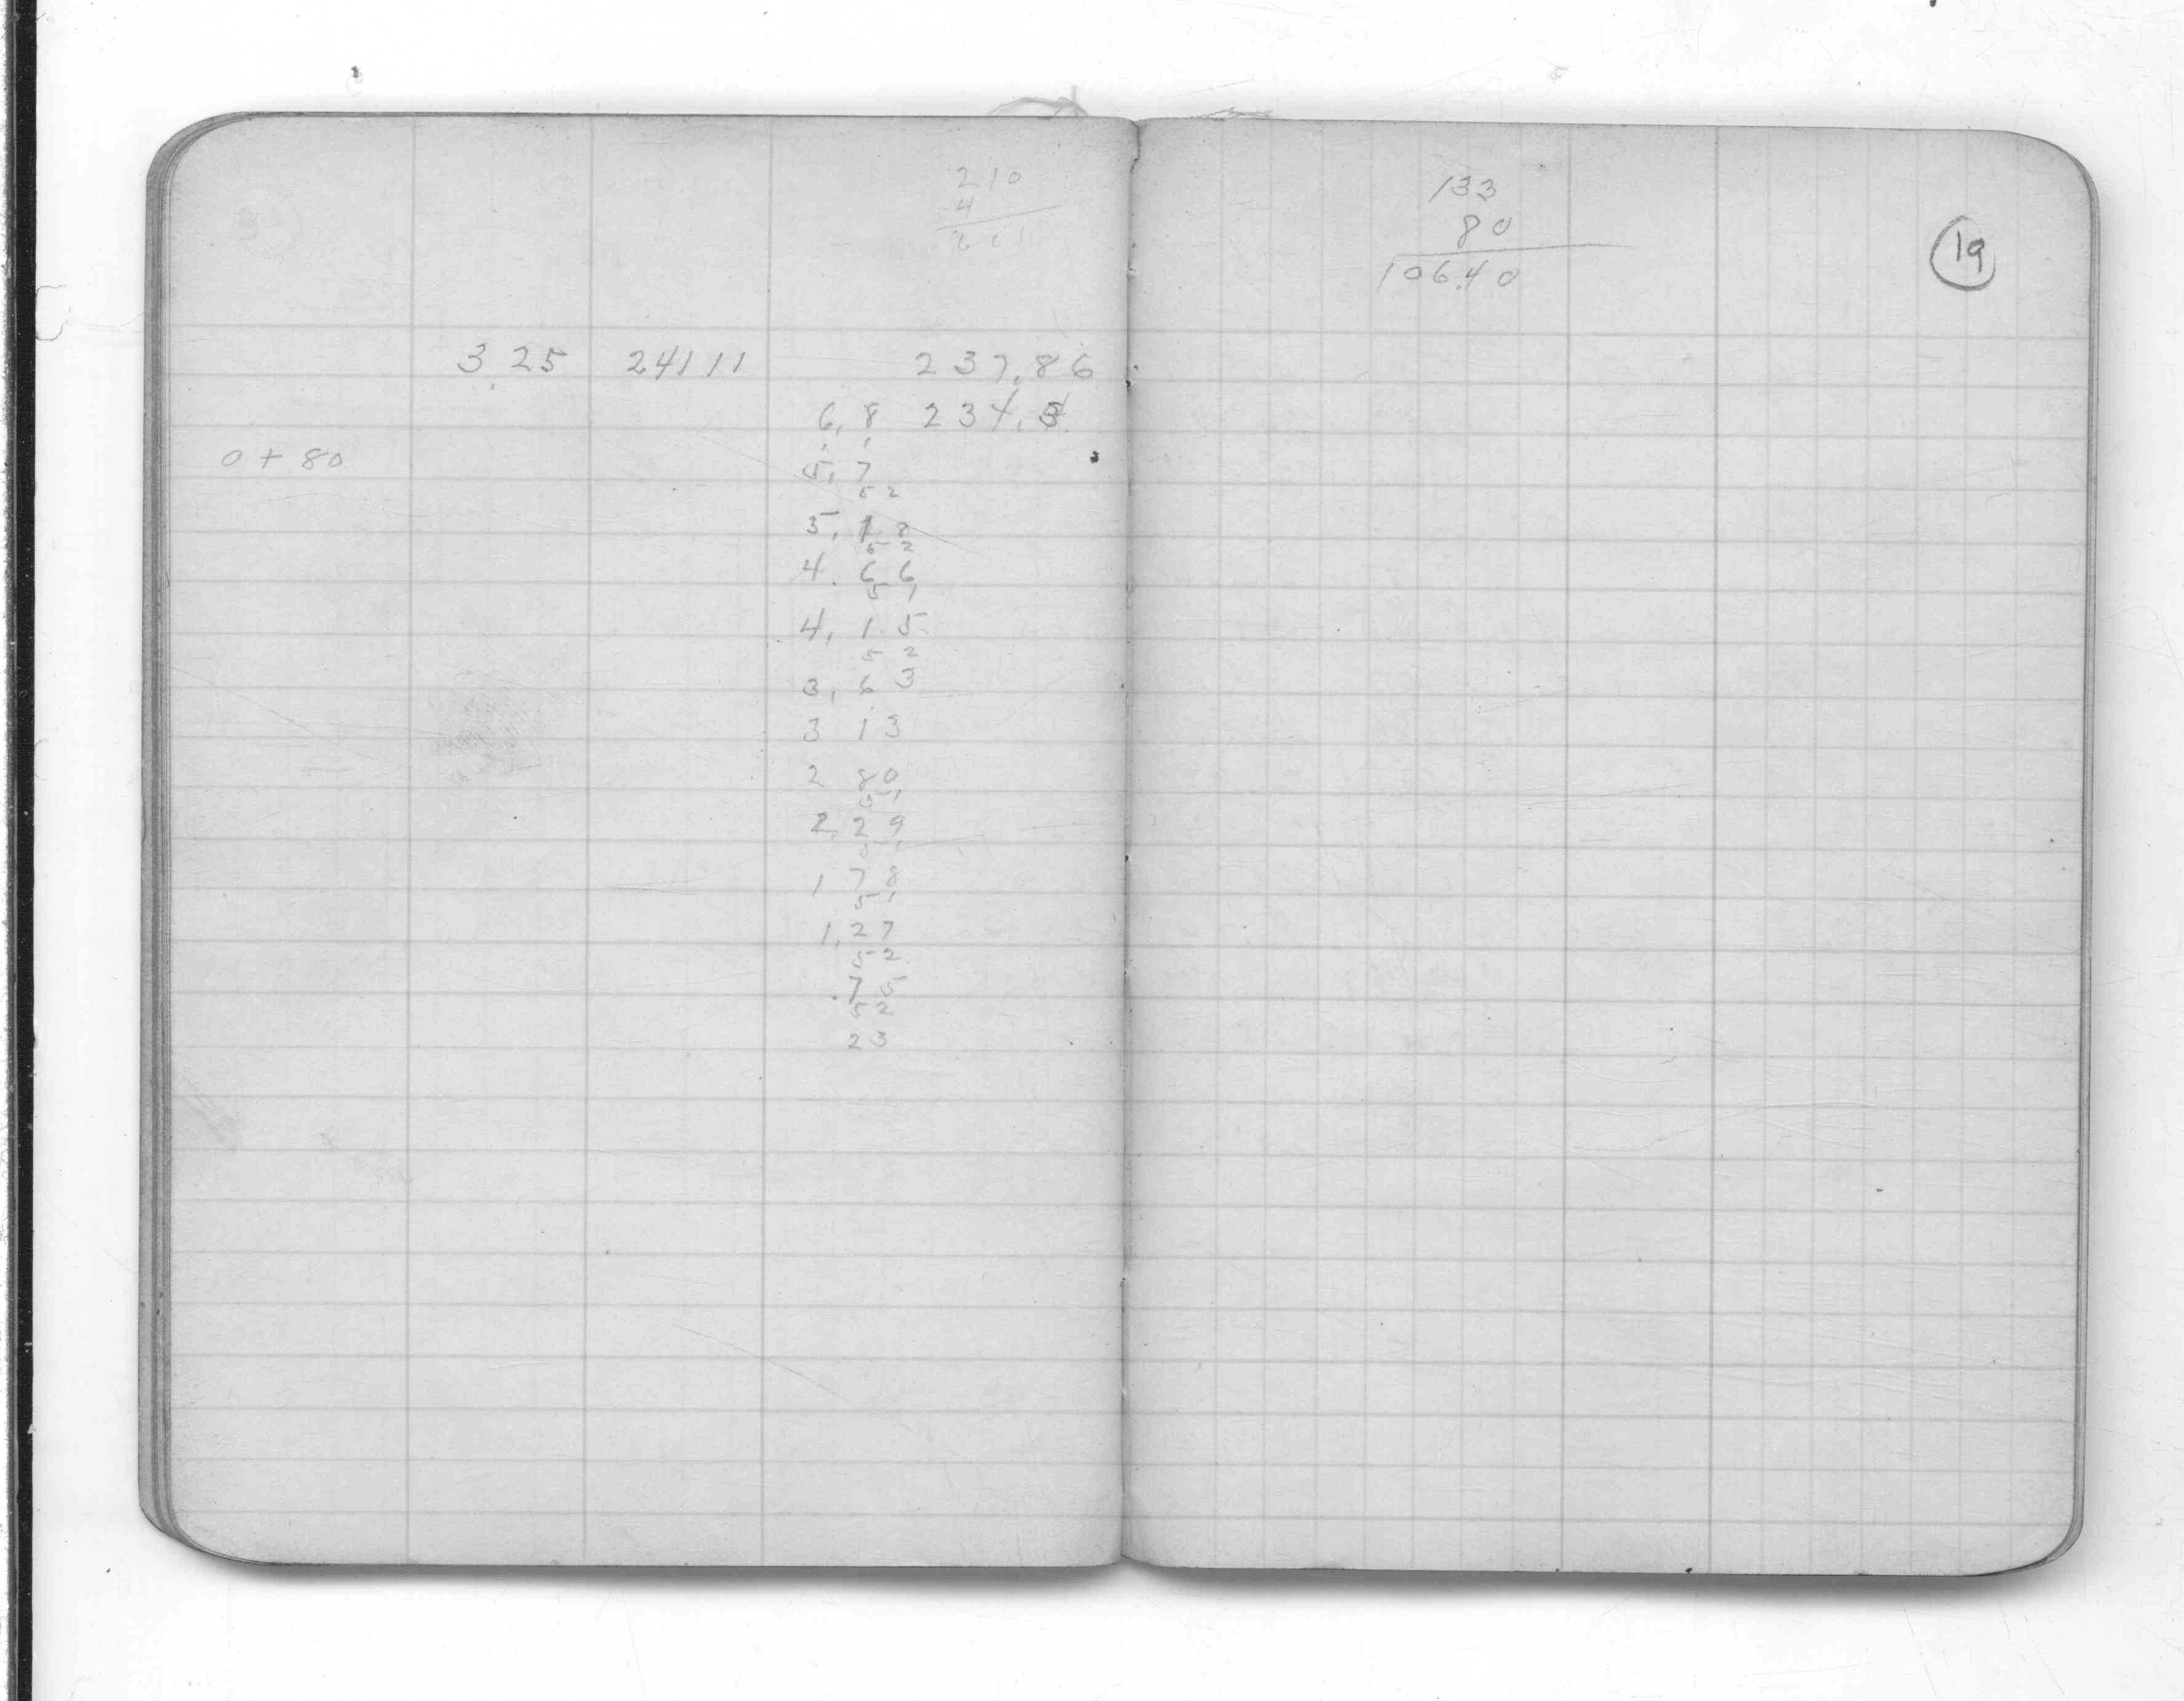 210
4
3.25 24111 237.86
6.8 234.
0 + 80
5.7
52
5.18
52
4.66
51
4.15
52
3.63
3 13
2 80
51
2.29
51
1 78
51
1.27
52
.75
52
23
133
80
106.40
19